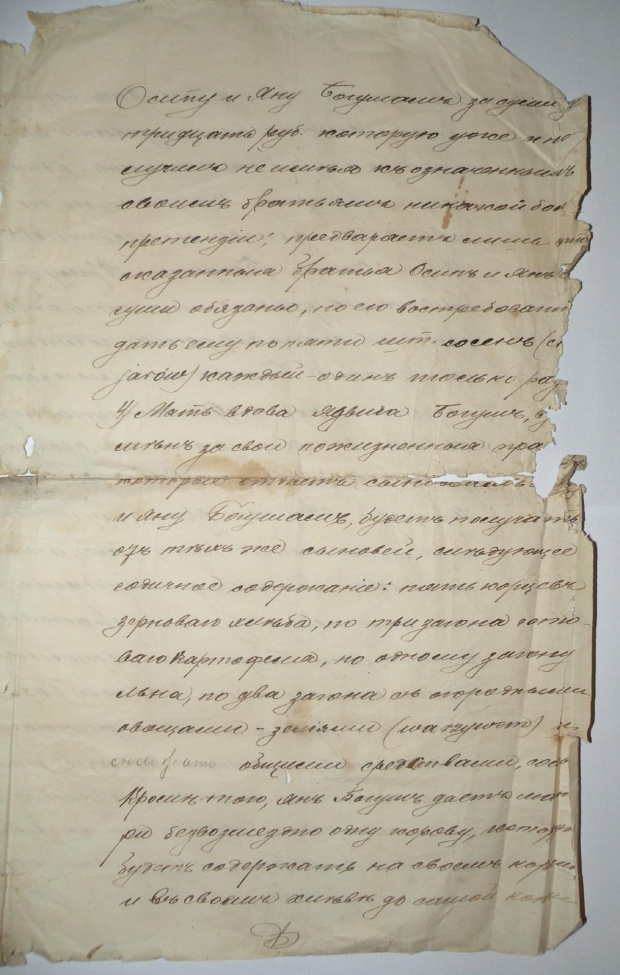 Осипу и Яну Богушамъ за сумму
тридцать руб. которую уже и по
лучилъ не имѣя къ означеннымъ
своимъ братьямъ никакой бол
претензіи; предваряетъ лишь что
сказанные братья Осипъ и Янъ
гуши обязаны, по его востребован
дать ему по пяти шт. сосенъ (
jarów) каждый - одинъ только раз
4) Мать вдова Ядвига Богушъ,
мѣнъ за свои пожизненныя пра
которые сыновьямъ
и Яну Богушамъ, будетъ получать
отъ тѣхъ же сыновей, слѣдующее
годичное содержаніе: пять корцевъ
зерноваго хлѣба, по три загона гото-
ваго картофеля, по одному загону
льна, по два загона съ огородными
овощами - зеліями (warzywom) и
общими средствами,
Кромѣ того, Янъ Богушъ дастъ мате
ри безвозмездно одну корову, котору
будетъ содержать на своемъ корм
и въ своемъ хлѣвѣ до самой